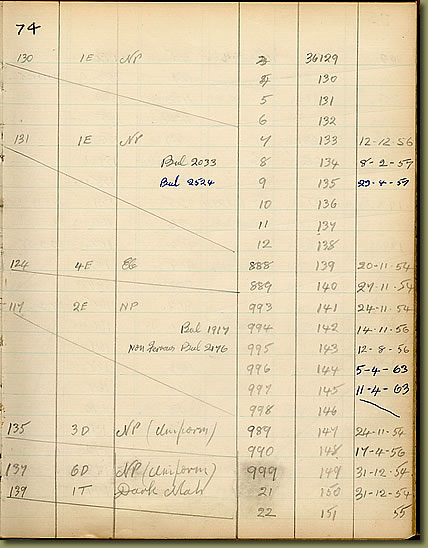 74
130 1E NP 3 36129
4 130
5 131
6 132
131 1E NP 7 133 12-12-56
Bul 2033 8 134 8-2-57
Bul 2524 9 135 29-4-57
10 136
11 137
12 138
124 4E 888 139 20-11-54
889 140 27-11-54
117 2E NP 993 141 24-11-54
Bul 1917 994 142 14-11-56
Non Ferrous Bul 2176 995 143 12-8-56
996 144 5-4-63
997 145 11-4-63
998 146
135 3D NP (Uniform) 989 147 24-11-54
990 148 17-4-56
137 6D NP (Uniform) 999 149 31-12-54
139 1T Dark Mah 21 150 31-12-54
22 151 55